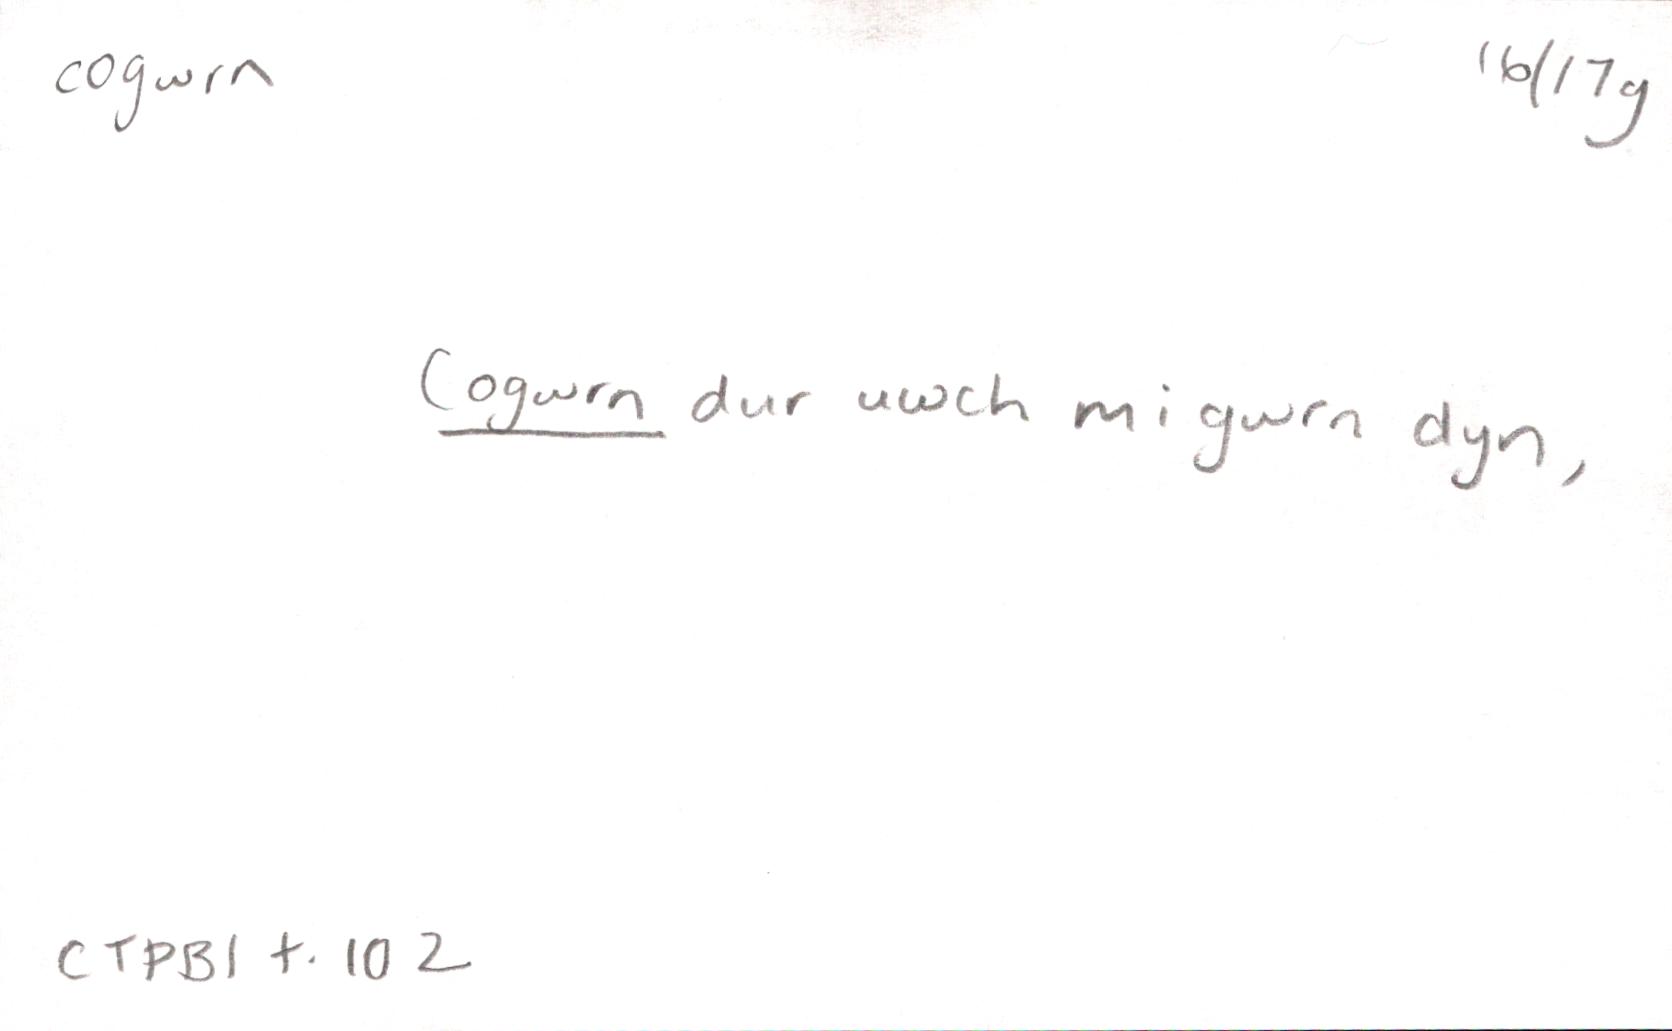 cogwrn
16/17g
Cogwrn dur uwch migwrn dyn,
CTPB1 t. 102